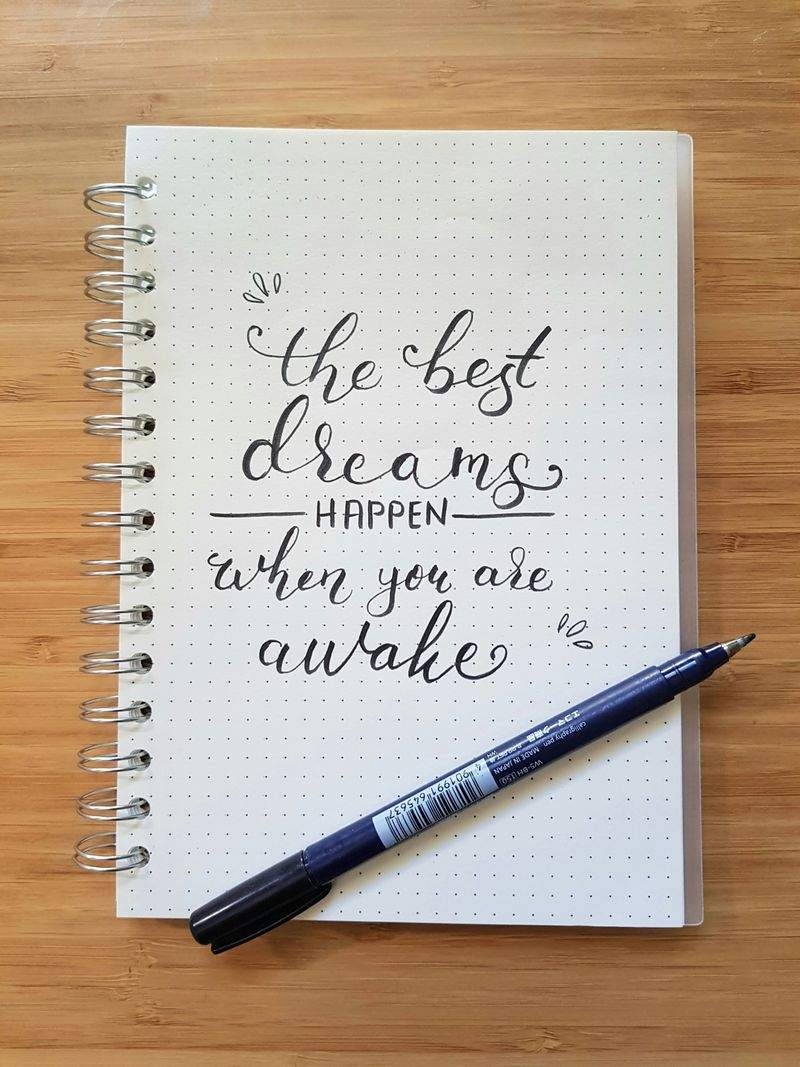 the best
dreams
HAPPEN
when you are
awake
4901991645637
calligraphy pen MADE IN JAPAN
WS-BH(150)